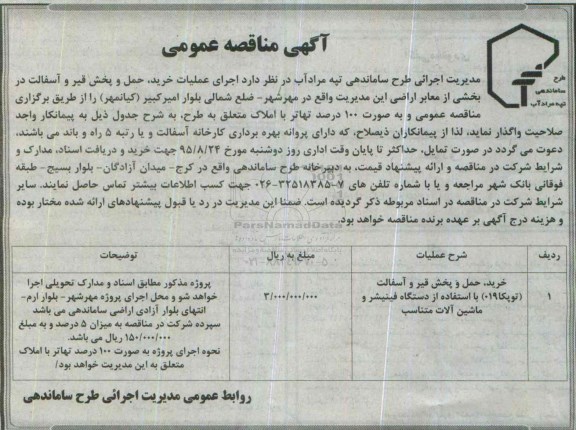 آگهی مناقصه عمومی
طرح
ساماندهی
تپه مرادآب
مدیریت اجرائی طرح ساماندهی تپه مرادآب در نظر دارد اجرای عملیات خرید، حمل و پخش قیر و آسفالت در
بخشی از معابر اراضی این مدیریت واقع در مهرشهر- ضلع شمالی بلوار امیرکبیر (کیانمهر) را از طریق برگزاری
مناقصه عمومی و به صورت ۱۰۰ درصد تهاتر با املاک متعلق به طرح، به شرح جدول ذیل به پیمانکار واجد
صلاحیت واگذار نماید، لذا از پیمانکاران ذیصلاح، که دارای پروانه بهره برداری کارخانه آسفالت و یا رتبه ۵ راه و باند می باشند،
دعوت می گردد در صورت تمایل، حداکثر تا پایان وقت اداری روز دوشنبه مورخ ۹۵/۸/۲۴ جهت خرید و دریافت اسناد، مدارک و
شرایط شرکت در مناقصه و ارائه پیشنهاد قیمت، به دبیرخانه طرح ساماندهی واقع در کرج- میدان آزادگان- بلوار بسیج- طبقه
فوقانی بانک شهر مراجعه و یا با شماره تلفن های ۷-۳۲۵۱۸۳۸۵-۰۲۶ جهت کسب اطلاعات بیشتر تماس حاصل نمایند. سایر
شرایط شرکت در مناقصه در اسناد مربوطه ذکر گردیده است. ضمنا این مدیریت در رد یا قبول پیشنهادهای ارائه شده مختار بوده
و هزینه درج آگهی بر عهده برنده مناقصه خواهد بود.
ParsNamadData
ردیف	شرح عملیات	مبلغ به ریال	توضیحات
۱
خرید، حمل و پخش قیر و آسفالت
(توپکا۰۱۹) با استفاده از دستگاه فینیشر و
ماشین آلات متناسب
۳/۰۰۰/۰۰۰/۰۰۰
پروژه مذکور مطابق اسناد و مدارک تحویلی اجرا
خواهد شو و محل اجرای پروژه مهرشهر- بلوار ارم-
انتهای بلوار آزادی اراضی ساماندهی می باشد
سپرده شرکت در مناقصه به میزان ۵ درصد و به مبلغ
۱۵۰/۰۰۰/۰۰۰ ریال می باشد.
نحوه اجرای پروژه به صورت ۱۰۰ درصد تهاتر با املاک
متعلق به این مدیریت خواهد بود/
روابط عمومی مدیریت اجرائی طرح ساماندهی